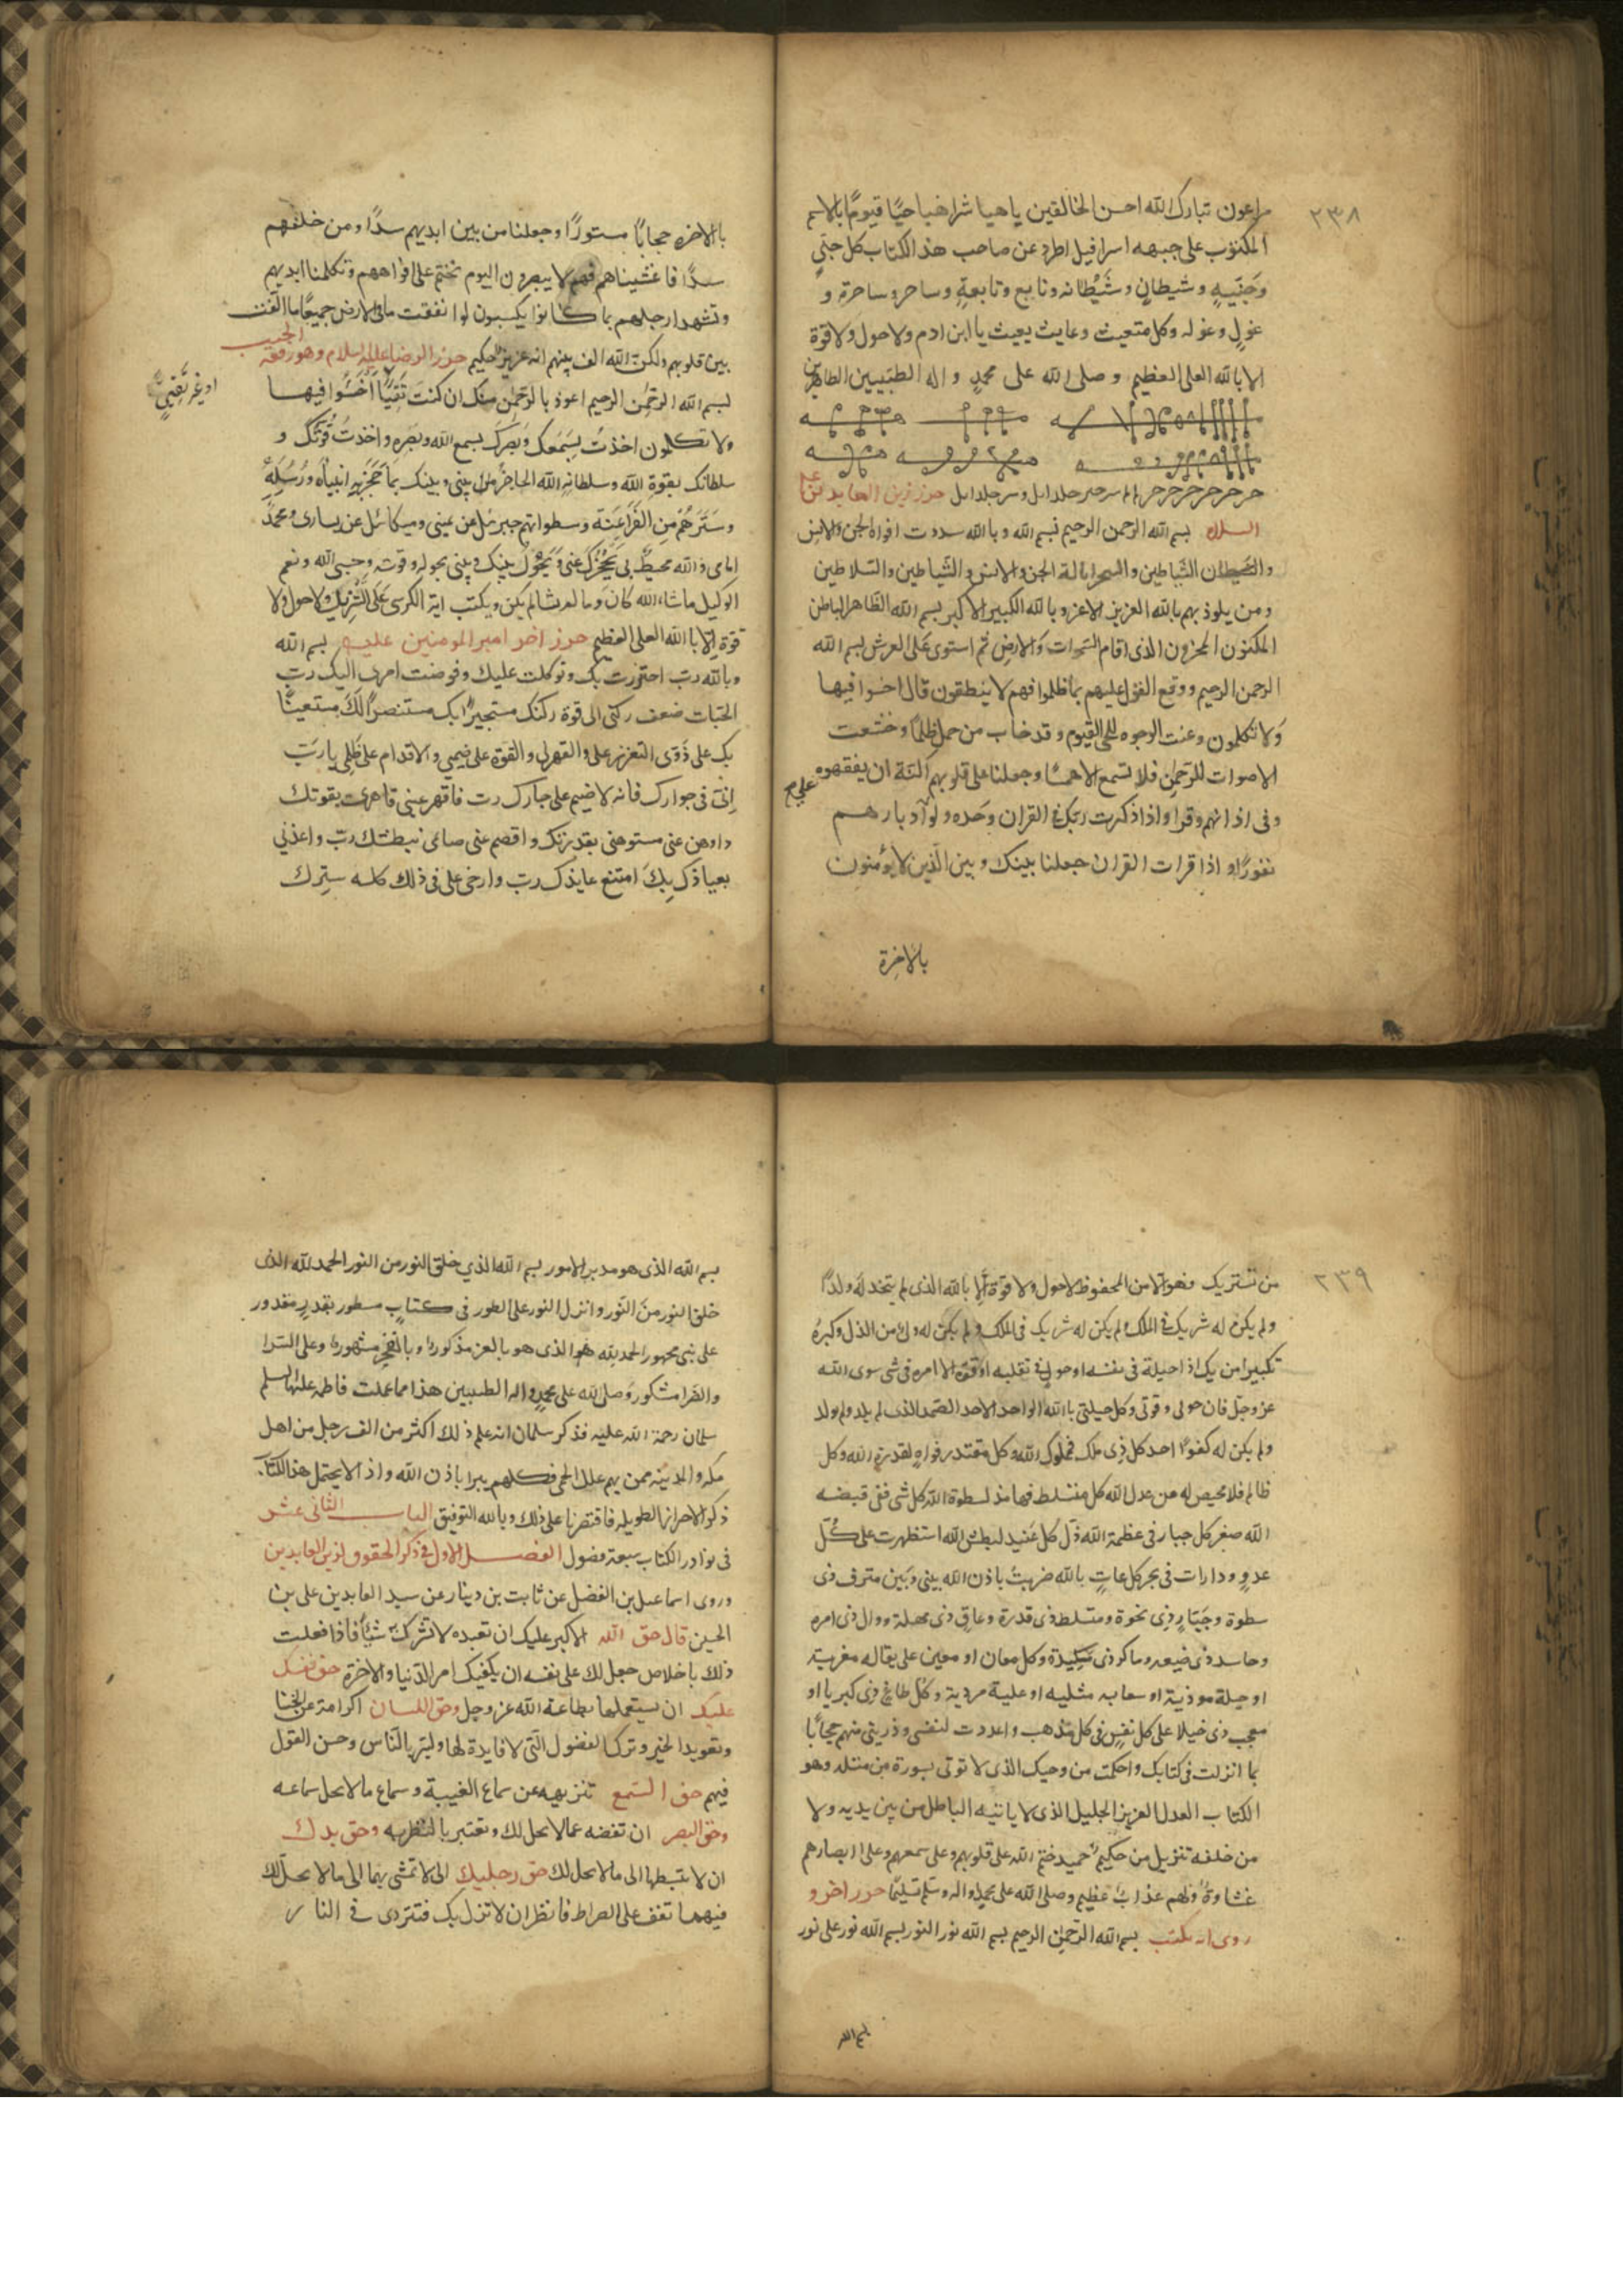 ٢٣٨
راعون تبارك الله احسن الخالقين ياهيا شراهيا حيًا قيومًا بالاسم
المكتوب على جبهه اسرافيل اطرد عن صاحب هذا الكتاب كل جنيٍ
وجَنّيةٍ وشيطانٍ وشَيْطانه وتابع وتابعةٍ وساحر وساحرة و
غولٍ وغوله وكل متعيث وعايث يعيث باابن ادم ولاحول ولا قوة
الا بالله العلى العظيم وصلى الله على محمدٍ واله الطيبين الطاهرين
حرز زين العابدين عليه
السلام بسم الله الرحمن الرحيم بسم الله وبالله سددت افواه الجن والانس
والشيطان الشياطين والسحرا بالة الجن والانس والشياطين والسلاطين
ومن يلوذ بهم بالله العزيز الاعز وبالله الكبير الاكبر بسم الله الظاهر الباطن
المكنون المخزون الذى اقام السموات والارض ثم استوى على العرش بسم الله
الرحمن الرحيم ووقع القول عليهم بما ظلموا فهم لا ينطقون قال اخسوا فيها
وَلا تكلمون وعنت الوجوه للحى القيوم وقد خاب من حمل ظلمًا وخشعت
الاصوات للرحمن فلا تسمع الا همسًا وجعلنا على قلوبهم اكنة ان يفقهوه
وفى اذانهم وقرا واذا ذكرت ربك فى القران وحَده ولوا على ادبارهم
نفورًا و اذا قرات القران جعلنا بينك وبين الذين لا يؤمنون
بالاخرة
بالاخره حجابًا مستورًا وجعلنا من بين ايديهم سدًا ومن خلفهم
سدًا فاغشيناهم فهم لا يبصرون اليوم نختم على افواههم وتكلمنا ايديهم
وتشهد ارجلهم بما كانوا يكسبون لو انفقت ما فى الارض جميعًا ما الفت
بين قلوبهم ولكن الله الف بينهم انه عزيز حكيم حرز الرضا عليه السلام وهو رقعه الجيب
بسم الله الرحمن الرحيم اعوذ بالرحمن منك ان كنتَ تَقِيًّا اخسَئوا فيها
او غير تَقِىٍ
ولا تكلمون اخذتُ بسَمعك وَبَصَرَك بسمع الله وبَصَره واخذتُ قُوتَك و
سلطانك بقوة الله وسلطانه الله الحاجز بينى وبينك بما حَجَز به انبياه ورُسُله
وسَتَرهُم من الفَراعِنَة وسطواتهم جبرئيل عن يمينى وميكائل عن يسارى ومحمدً
امامى والله محيطٌ بى يَحْجُزك عنى ويَحُول بينك وبينى بحوله وقوته وحسبى الله ونعم
الوكيل ماشاء الله كانَ وما لم يشا لم يكن ويكتب اية الكرسى على التنزيل ولاحول ولا
قوة الا بالله العلى العظيم حرز اخر امير المومنين عليه بسم الله
وبالله رب احترزت بك وتوكلت عليك وفوضت امرى اليك رب
الجئات ضعف ركنى الى قوة ركنك مستجيرًا بك مستنصرًا لَكَ مستعينًا
بك على ذَوى التعزز على والقهر لى والقوة على ضيمى والاقدام على ظلمى يارَبّ
اِنى فى جوارك فانه لا ضيم على جارك رب فاقهر عنى قاهرى بقوتك
واوهن عنى مستوهنى بقدرتك واقصم عنى ضائمى ببطشك رب واعذنى
بعياذك بِكَ امتنع عايذك رب وارخى على فى ذلك كله سترك
٢٣٩
من تستر بك فهو الامن المحفوظ لاحول ولا قوة الا بالله الذى لم يتخذ لَه ولدًا
ولم يكن له شريك فى الملك ولم يكن له ولى من الذل وكبره
تكبيرا من يك اذا حيلة فى نفسه او حول فى تقلبه او قوة الا امره فى شى سوى الله
عز وجل فان حولى وقوتى وكل حيلتى بالله الواحد الاحد الصمد الذى لم يلد ولم يولد
ولم يكن له كفوًا احد كل ذى ملك فمملوك الله وكل مقتدر لقدرة الله وكل
ظالم فلا محيص له من عدل الله كل متسلط لسطوة الله كل شى ففى قبضه
الله صغر كل جبار فى عظمة الله ذل كل عَنيد لبطش الله استظهرت على كُلّ
عدوٍ ودارات فى نحر كل عاتٍ بالله ضربتُ باذن الله بينى وبَين مترف ذى
سطوة وجَبَّارٍ ذى نخوة ومتسلط ذى قدرة وعاقٍ ذى مهلة ووال ذى امره
وحاسد ذى ضيعه وماكر ذى مَكيدة وكل معان او معين على بقاله مغرية
او حيلة موذية او سعايه مثليه او علية مردية وكل طاغٍ ذى كبريا او
معجب ذى خيلا على كل نفسٍ فى كل مذهب واعددت لنفسى وذريتى منهم حجابًا
بما انزلت فى كتابك واحكمت من وحيك الذى لا توتى بسورة من مثله وهو
الكتاب العدل العزيز الجليل الذى لا ياتيه الباطل من بين يديه ولا
من خلفه تنزيل من حكيم حميد ختم الله على قلوبهم وعلى سمعهم وعلى ابصارهم
غشاوةٌ ولهم عذابٌ عظيم وصلى الله على محمدٍ واله وسلم تسليمًا حرز اخر و
روى انه يكتب بسم الله الرحمن الرحيم بسم الله نور النور بسم الله نور على نور
بسم الله
بسم الله الذى هو مدبر الامور بسم الله الذي خلق النور من النور الحمد لله الذى
خلق النور منَ النور وانزل النور على الطور فى كتابٍ مسطور بقدرٍ مقدور
على نبى محبور الحمد لله الذى هو بالعز مذكورا وبالفخر مشهورًا وعلى السرا
والضرا مشكور وَصلى الله على محمدٍ واله الطيبين هذا مما علمت فاطمه عليها السلم
سلمان رحمة الله عليه فذكر سلمان انه علم ذلك اكثر من الف رجل من اهل
مكه والمدينه ممن بهم علل الحمى فكلهم يبرا باذن الله واذ الا يحتمل هذا الكتاب
ذكر الاحراز الطويله فاقتصرنا على ذلك وبالله التوفيق الباب الثانى عشر
فى نوادر الكتاب سبعة فصول الفصل الاول فى ذكر الحقوق لزين العابدين
وروى اسماعيل بن الفضل عن ثابت بن دينار عن سيد العابدين على بن
الحسين قال حق الله الاكبر عليك ان تعبده لا تشرك به شيئًا فاذا فعلت
ذلك باخلاص جعل لك على نفسه ان يكفيك امر الدنيا والاخرة حق نفسك
عليك ان يستعملها بطاعة الله عز وجل وحق اللسان اكرامة عن الخنا
وتعويد الخير وترك الفضول التى لا فايدة لها والبر بالناس وحسن القول
فيهم حق السمع تنزيهه عن سماع الغيبة وسماع ما لا يحل سماعه
وحق البصر ان تغضه عما لا يحل لك وتعتبر بالنظر به وحق يدك
ان لا تبسطها الى ما لا يحل لك حق رجليك ان لا تمشى بهما الى ما لا يحل لك
فبهما تقف على الصراط فانظر ان لا تزل بك فتتردى فى النار